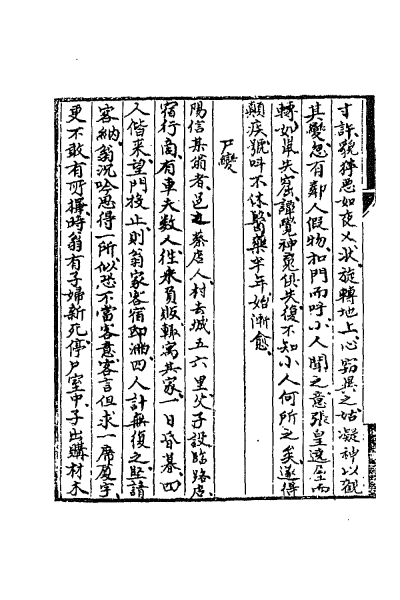 寸許貌猙惡如夜叉狀旋轉地上心竊異之姑凝神以觀
其變忽有鄰人假物扣門而呼小人聞之意張皇遶屋而
轉如鼠失窟譚覺神魂俱失復不知小人何所之矣遂得
顛疾號叫不休醫藥半年始漸愈
尸變
陽信某翁者邑之蔡店人村去城五六里父子設臨路店
宿行商有車夫數人往來負販輒寓其家一日昏暮四
人偕來望門投止則翁家客宿邸滿四人計無復之堅請
容納翁沉吟思得一所似恐不當客意客言但求一席廈宇
更不敢有所擇時翁有子婦新死停尸室中子出購材木